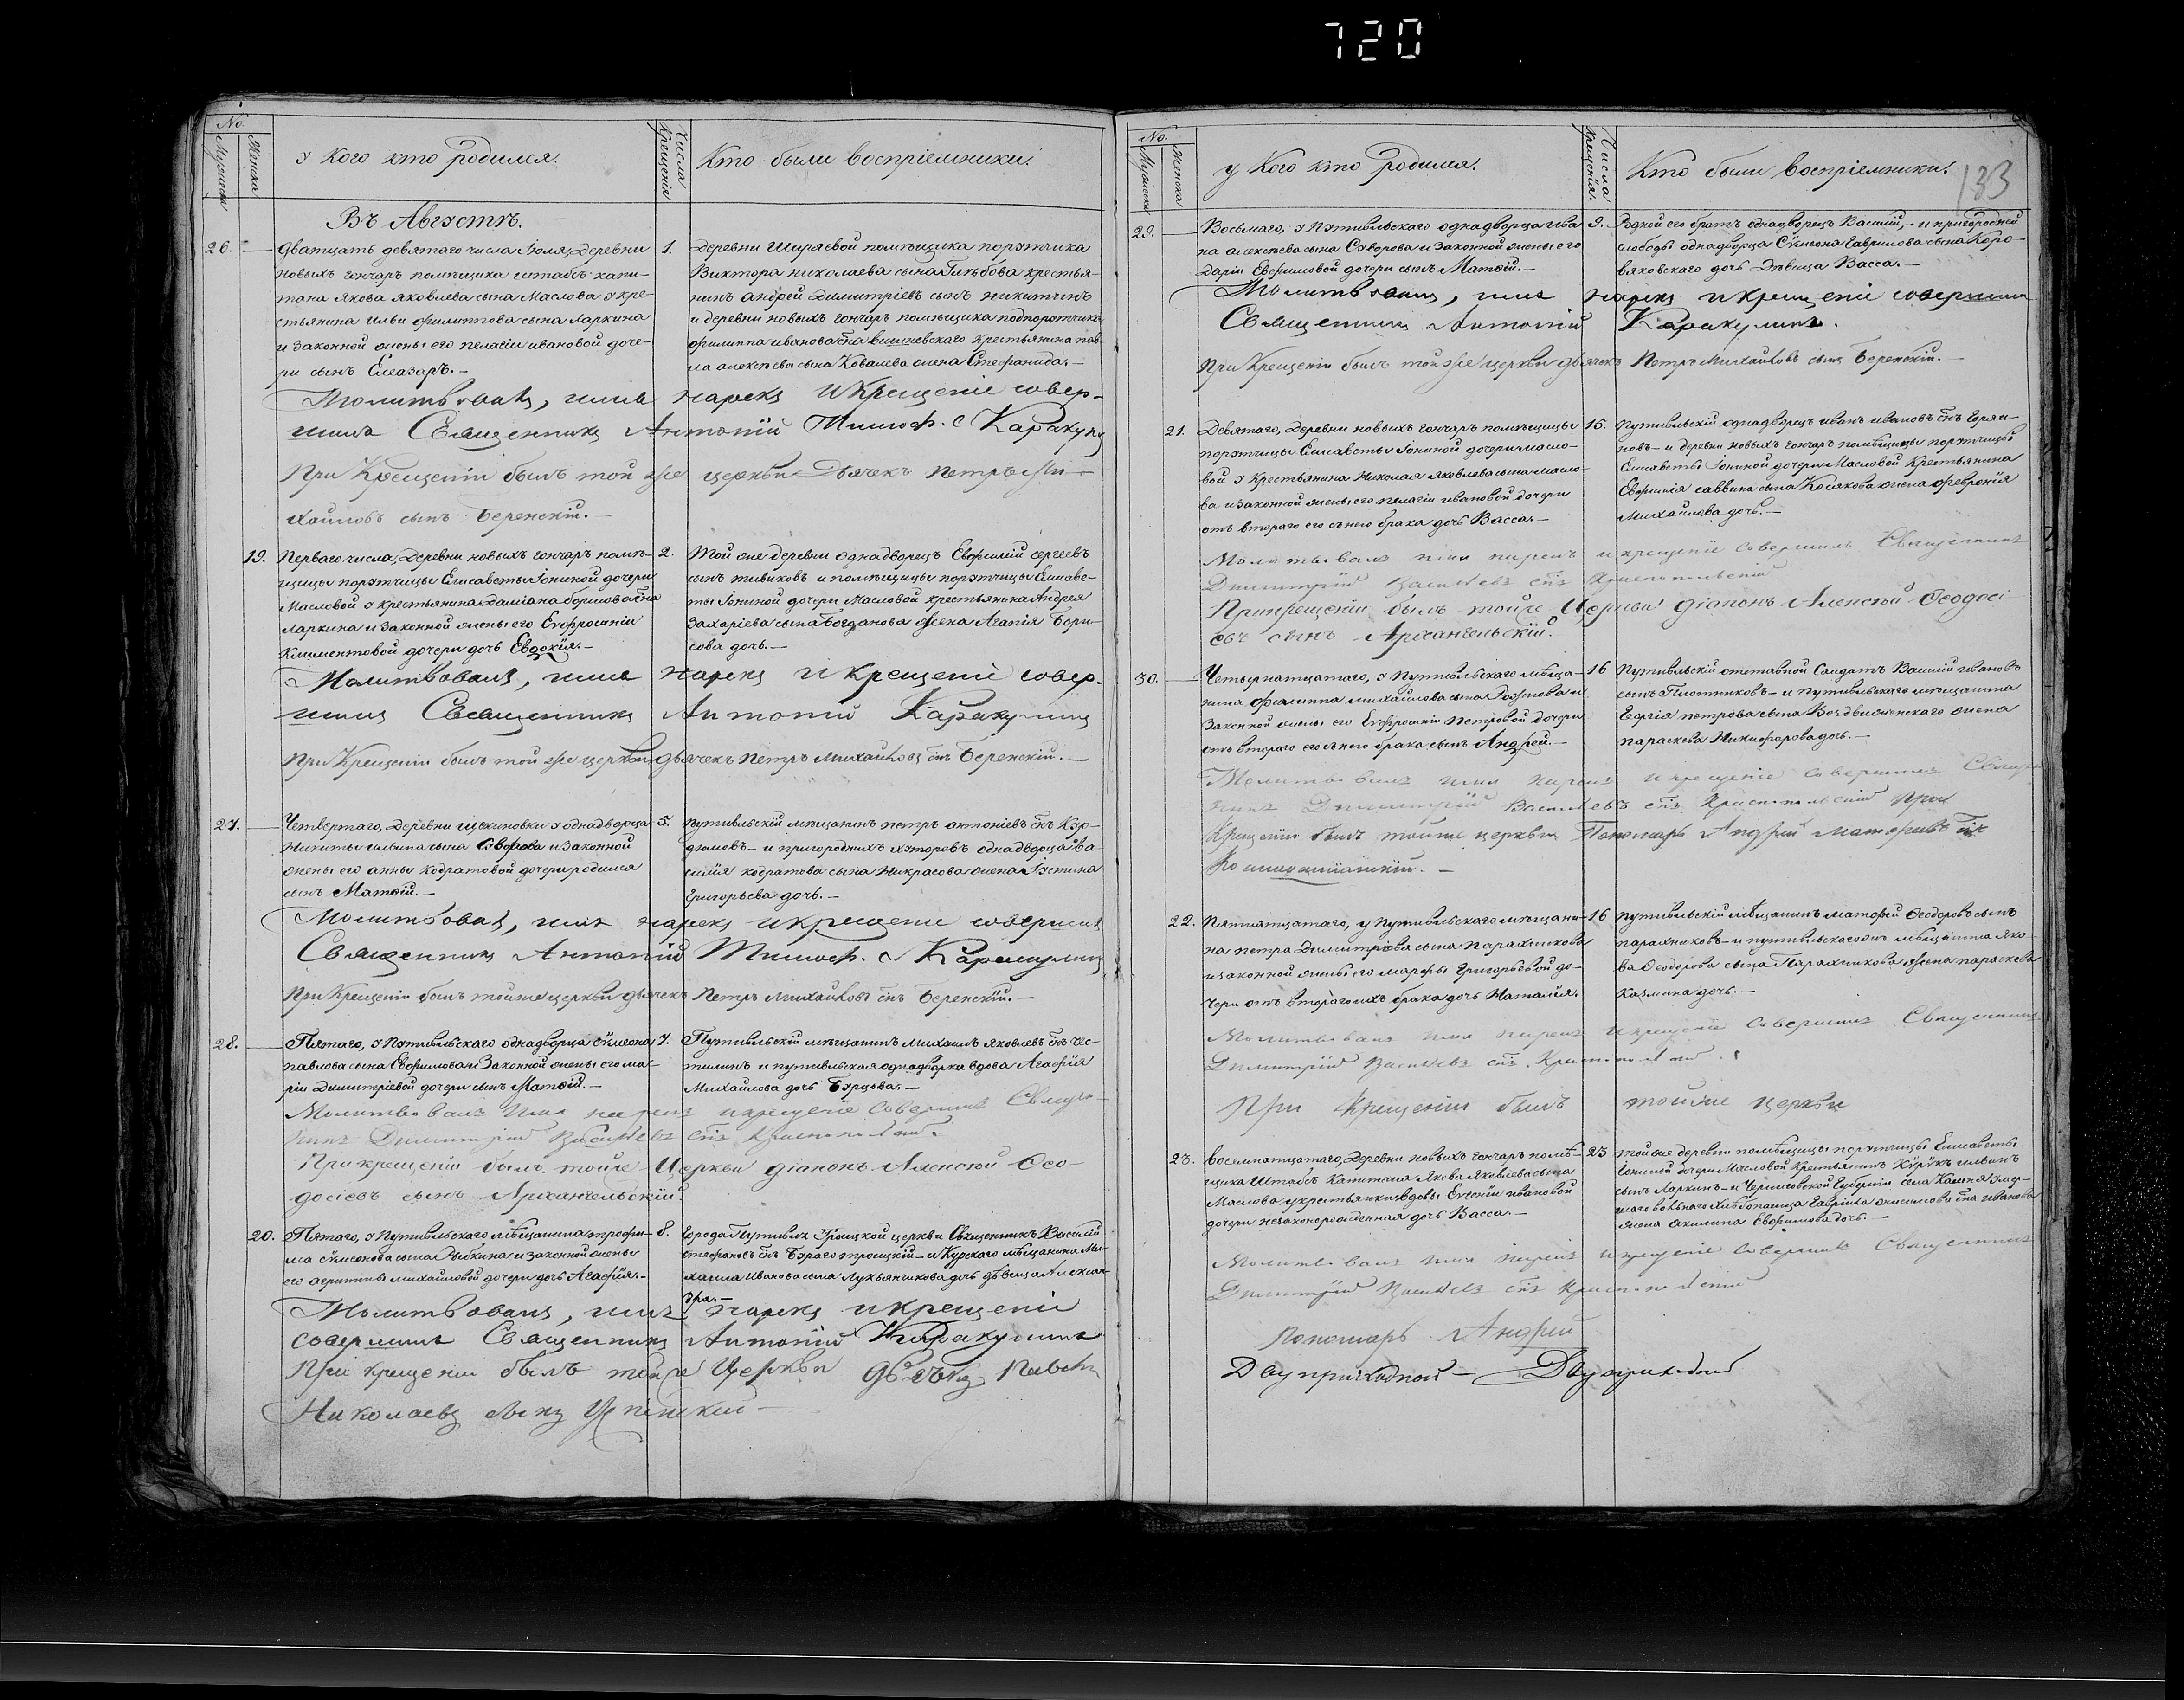 720
No.
Мужеска
Женска
у Кого кто родился.
Числа Крещенія
Кто были воспріемники.
Въ Августѣ.
26. Дватцать девятаго числа Іюля, Деревни
новыхъ гончаръ помѣщика штабъ-капи-
тана Якова Яковлева сына Маслова у кре-
стьянина Ильи Филиппова сына Ларкина
и Законной жены его Пелагіи Ивановой доче-
ри сынъ Елеазаръ.—
1. Деревни Ширяевой помѣщика порутчика
Виктора Николаева сына Глѣбова крестья-
нинъ Андрей Димитріевъ сынъ Никитинъ
и деревни новыхъ гончаръ помѣщика подпорутчика
Филиппа Иванова сна Вишневскаго крестьянина пав-
ла Алексѣева сына Ковалева жена Стефанида.—
Молитвовалъ, имя нарекъ и крещеніе совер-
шилъ Священникъ Антоній Тимоф. с Каракул
При Крещеніи былъ той же церкви Дьячекъ Петръ Ми-
хайловъ сынъ Беренскій.—
19. Перваго числа, Деревни новыхъ гончаръ помѣ-
щицы порутчицы Елисаветы Іониной дочери
Масловой у крестьянина Даміана Борисова сна
Ларкина и Законной жены его Евфросиніи
Климентовой дочери дочь Евдокія.—
2. Той же деревни однадворецъ Евфимій Сергеевъ
сынъ Тивиковъ и помѣщицы порутчицы Елисаве-
ты Іониной дочери Масловой крестьянина Андрея
Захаріева сына Богданова жена Агапія Бори-
сова дочь.—
Молитвовалъ, имя нарекъ и крещеніе совер-
шилъ Священникъ Антоній Каракулинъ
При Крещеніи былъ той же церкви дьячекъ Петръ Михайловъ снъ Беренскій.—
27. Четвертаго, Деревни Щекиновки у однадворца
Никиты Ильина сына Суворова и Законной
жены его Анны Кодратовой дочери родился
сынъ Матвій.—
5. Путивльскій мѣщанинъ Петръ Антоніевъ снъ Кур-
дюмовъ— и пригородныхъ хуторовъ однадворца Ва-
силія Кодратова сына Никрасова жена Іустина
Григорьева дочь.—
Молитвовалъ, имя нарекъ и крещеніе совершилъ
Священникъ Антоній Тимоф. с Каракулинъ
При Крещеніи былъ той же церкви дьячекъ Петръ Михайловъ снъ Беренскій.—
28. Пятаго, у Путивльскаго однадворца Симеона
Павлова сына Евфимова и Законной жены его Ма-
ріи Димитріевой дочери сынъ Матвій.—
7. Путивльскій мѣщанинъ Михаилъ Яковлевъ снъ Чес-
тилинъ и путивльская однадворка вдова Агафія
Михайлова дочь Бурцова.—
Молитвовалъ имя нарекъ и крещеніе совершилъ Священ-
никъ Димитрій Васильевъ снъ
При крещеніи былъ тойже Церкви діаконъ Алексій Ѳео-
досіевъ сынъ Архангельскій.
20. Пятаго, у Путивльскаго мѣщанина Трофи-
ма Симеонова сына Рыбкина и законной жены
его Агрипины Михайловой дочери дочь Агафія.—
8. Города Путивля Троицкой церкви Священникъ Василій
Стефановъ снъ Бураго троицкій— и Курскаго мѣщанина Ми-
хаила Иванова сына Лукьянчикова дочь дѣвица Алексан-
дра.—
Молитвовалъ, имя нарекъ и крещеніе
совершилъ Священникъ Антоній Каракулинъ
При крещеніи былъ той же Церкви дьячекъ Павелъ
Николаевъ сынъ Успенскій—
No.
Мужеска
Женска
у Кого кто родился.
Числа Крещенія.
Кто были воспріемники.
133
29. Восьмаго, у Путивльскаго однадворца Ива
на Алексѣева сына Суворова и Законной жены его
Даріи Евфимовой дочери сынъ Матвій.—
9. Родной его братъ однадворецъ Василій,— и пригородней
слободы однадворца Симеона Гаврилова сына Коро-
вяковскаго дочь Дѣвица Васса.—
Молитвовалъ, имя нарекъ и крещеніе совершилъ
Священникъ Антоній Каракулинъ.
При Крещеніи былъ той же церкви дьячекъ Петръ Михайловъ сынъ Беренскій.—
21. Девятаго, Деревни новыхъ гончаръ помѣщицы
порутчицы Елисаветы Іониной дочери масло-
вой у Крестьянина Николая Яковлева сына масло-
ва и законной жены его Пелагіи Ивановой дочери
отъ втораго его с нею брака дочь Васса.—
15. Путивльскій однадворецъ Иванъ Ивановъ снъ
новъ— и деревни новыхъ гончаръ помѣщицы порутчицы
Елисаветы Іониной дочери Масловой Крестьянина
Евфимія Саввина сына Косякова жена Февронія
Михайлова дочь.—
Молитвовалъ имя нарекъ и крещеніе совершилъ Священникъ
Димитрій Васильевъ снъ Краснопольскій
При крещеніи былъ тойже Церкви діаконъ Алексій Ѳеодосі
евъ сынъ Архангельскій.
30. Четырнатцатаго, у Путивльскаго мѣща-
нина Филиппа Михайлова сына и
Законной жены его Евфросиніи Петровой дочери
отъ втораго его с нею брака сынъ Андрей.—
16 Путивльскій отставной Салдатъ Василій Ивановъ
сынъ Плотниковъ— и путивльскаго мѣщанина
Георгія Петрова сына Воздвиженскаго жена
Параскева Никифорова дочь.—
Молитвовалъ имя нарекъ и крещеніе совершилъ Священ
никъ Димитрій Васильевъ снъ Краснопольскій При
Крещеніи былъ тойже церкви Пономарь Андрей Матфеивъ снъ
22. Пятнатцатаго, у Путивльскаго мѣщани-
на Петра Димитріева сына Парахникова
и законной жены его Марфы Григорьевой до-
чери отъ втораго ихъ брака дочь Наталія.
16 Путивльскій мѣщанинъ Матфей Ѳеодорово сынъ
Парахниковъ— и путивльскаго жъ мѣщанина Яко-
ва Ѳеодорова сына Парахникова жена Параскева
Казмина дочь.—
Молитвовалъ имя нарекъ и крещеніе совершилъ Священникъ
Димитрій Васильевъ снъ
При Крещеніи былъ тойже церкви
23. Восемнатцатаго, Деревни новыхъ гончаръ помѣ-
щика Штабсъ Капитана Якова Яковлева сына
Маслова у крестьянки вдовы Евгеніи Ивановой
дочери незаконорожденная дочь Васса.—
23 Той же деревни помѣщицы порутчицы Елисаветы
Іониной дочери Масловой крестьянинъ Ильинъ
сынъ Ларкинъ— и Черниговской Губерніи села
жена Акилина Евфимова дочь.—
Молитвовалъ имя нарекъ и крещеніе совершилъ Священникъ
Димитрій Васильевъ снъ
Пономарь Андрей
Двуприходной — Двуприходной